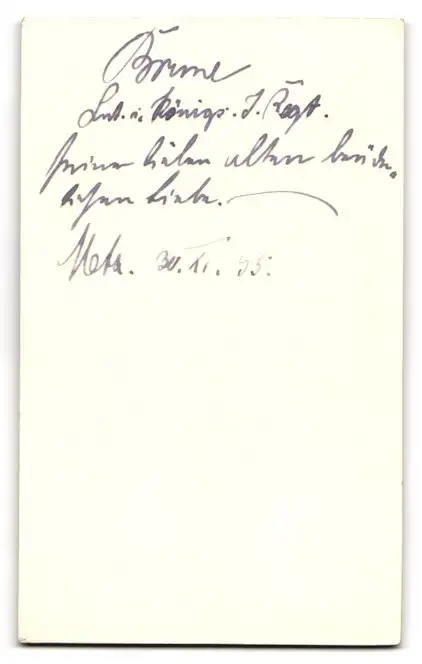 Lnt. i. Königs. J. Regt.
seiner lieben alten brüder-
lichen Liebe.
Metz. 30. XI. 95.